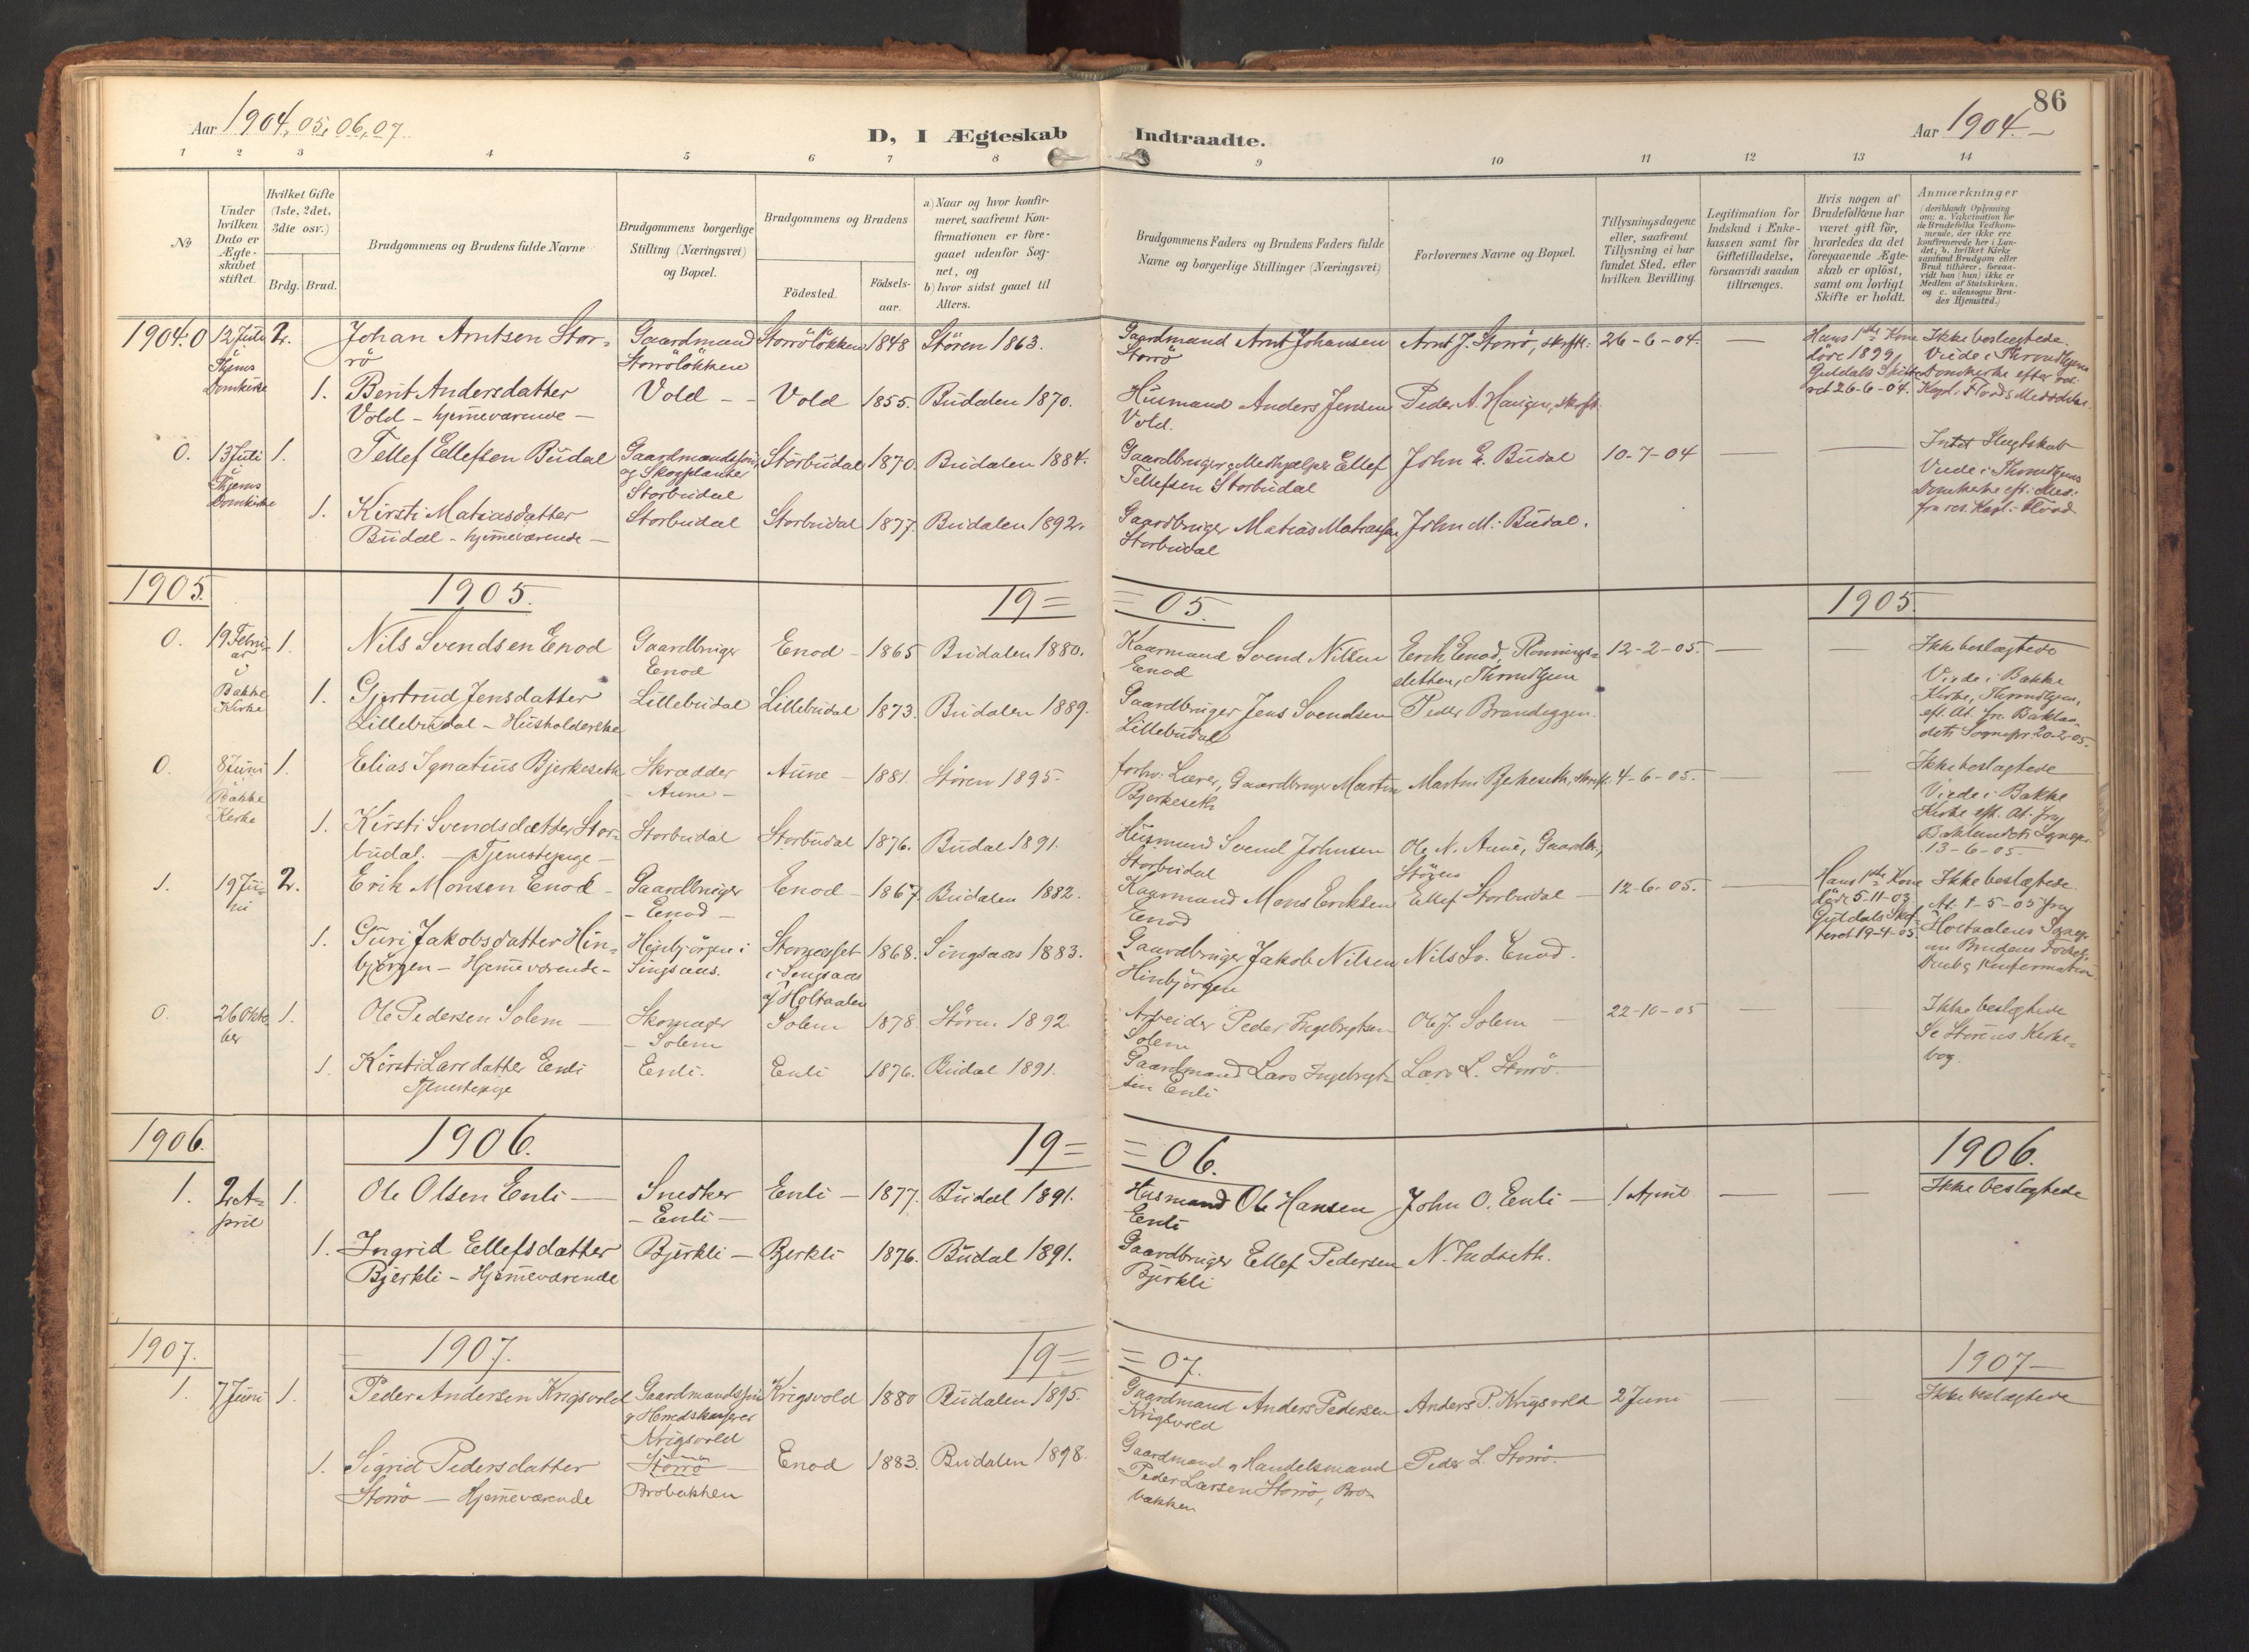 86
Aar 1904, 05, 06, 07
D, I Ægteskab Indtraadte.
Aar 1904.
1 2 3 4 5 6 7 8 9 10 11 12 13 14
No
Under hvilken Dato er Ægteskabet stiftet.
Hvilket Gifte (1ste, 2det, 3die osv.)
Brdg. Brud.
Brudgommens og Brudens fulde Navne
Brudgommens borgerlige Stilling (Næringsvei) og Bopæl.
Brudgommens og Brudens
Födested.
Födselsaar.
a) Naar og hvor konfirmeret, saafremt Konfirmationen er foregaaet udenfor Sognet, og
b) hvor sidst gaaet til Alters.
Brudgommens Faders og Brudens Faders fulde Navne og borgerlige Stillinger (Næringsvei)
Forlovernes Navne og Bopæl.
Tillysningsdagene eller, saafremt Tillysning ei har fundet Sted, efter hvilken Bevilling.
Legitimation for Indskud i Enkekassen samt for Giftetilladelse, forsaavidt saadan tiltrænges.
Hvis nogen af Brudefolkene har været gift för, hvorledes da det foregaaende Ægteskab er oplöst, samt om lovligt Skifte er holdt.
Anmærkninger
(deriblandt Oplysning om: a. Vakcination for de Brudefolks Vedkommende, der ikke ere konfirmerede her i Landet; b. hvilket Kirkesamfund Brudgom eller Brud tilhörer, forsaavidt han (hun) ikke er Medlem af Statskirken, og c. udensogns Brudes Hjemsted.)
1904. 0 12 Juli i Thjems Domkirke 2. Johan Arntsen Storrö Gaardmand Storrölökken Storrölökken 1848 Stören 1863. Gaardmand Arnt Johansen Storrö Arnt J. Storrö, 26-6-04. — Hans 1ste Kone döde 1899, Ikke beslægtede. Viede i Throndhjems Domkirke
1. Berit Andersdatter Vold - hjemmeværende - Vold - - Vold 1855. Budalen 1870. Husmand Anders Jensen Vold. Peder A. Haugen,
0. 13 Juli i Thjems Domkirke 1. Tellef Ellefsen Budal Gaardmandssön og Skogplanter Storbudal Storbudal 1870. Budalen 1884. Gaardbruger Medhjælper Ellef Tellefsen Storbudal John E. Budal 10-7-04 — — Intet Slegtskab Viede i Throndhjems Domkirke
1. Kirsti Matiasdatter Budal - hjemmeværende - Storbudal Storbudal 1877. Budalen 1892. Gaardbruger Matias Matiassen Storbudal John M. Budal.
1905. 1905. 19= =05. 1905.
0. 19 Februar i Bakke Kirke 1. Nils Svendsen Enod Gaardbruger Enod Enod - 1865 Budalen 1880. Kaarmand Svend Nilsen Enod Erik Enod, Rönningsletten, Throndhjem 12-2-05. — — Ikke beslægtede Viede i Bakke Kirke, Throndhjem,
1. Gjertrud Jensdatter Lillebudal - Husholderske Lillebudal Lillebudal 1873. Budalen 1889. Gaardbruger Jens Svendsen Lillebudal Peder Brandeggen.
0. 8 Juni i Bakke Kirke 1. Elias Ignatius Bjerkeseth Skrædder - Aune - Aune - 1881. Stören 1895. forhv. Lærer, Gaardbruger Martin Bjerkeseth Martin Bjerkeseth, 4-6-05. — — Ikke beslægtede Viede i Bakke Kirke eft. At. fra Baklandets Sognepr. 13-6-05.
1. Kirsti Svendsdatter Storbudal. - Tjenestepige - Storbudal Storbudal 1876. Budal 1891. Husmand Svend Johnsen Storbudal Ole N. Aune, Gaardbr., Stören
1. 19 Juni 2. Erik Monsen Enod - Gaardbruger - Enod - Enod - 1867. Budalen 1882. Kaarmand Mons Eriksen Enod Ellef Storbudal - 12-6-05. — Hans 1ste Kone döde 5-11-03 Ikke beslægtede. At. 1-5-05 fra Holtaalens Sognepr. om Brudens Födsel, Daab & Konfirmation
1. Guri Jakobsdatter Hinbjörgen - Hjemmeværende - Heinbjörgen i Singsaas. i Singsaas af Holtaalen 1868. Singsaas 1883. Gaardbruger Jakob Nilsen Hinbjörgen Nils Sv. Enod.
0. 26 Oktober 1. Ole Pedersen Solem — Skomager - Solem Solem 1878. Stören 1892 Arbeider Peder Ingebrigtsen Solem Ole J. Solem - 22-10-05 — — Ikke beslægtede Se Störens Kirkebog.
1. Kirsti Larsdatter Enli Tjenestepige Enli. Enli 1876. Budal 1891. Gaardmand Lars Ingebrigtsen Enli Lars L. Storrö.
1906. 1906. 19= =06. 1906.
1. 2 April 1. Ole Olsen Enli — Snedker - Enli - Enli - 1877. Budal 1891. Husmand Ole Hansen Enli John O. Enli - 1 April — — Ikke beslægtede
1. Ingrid Ellefsdatter Bjerkli - Hjemmeværende Bjerkli - Bjerkli 1876. Budal 1891. Gaardbruger Ellef Pedersen Bjerkli
1907. 1907. 19= =07. 1907
1. 7 Juni 1. Peder Andersen Krigsvold Gaardmandssön & Herredskasserer Krigsvold Krigsvold 1880 Budalen 1895. Gaardmand Anders Pedersen Krigsvold Anders P. Krigsvold 2 Juni — — Ikke beslægtede
1. Sigrid Pedersdatter Storrö - Hjemmeværende Storrö Brobakken Enod 1883. Budalen 1898. Gaardmand & Handelsmand Peder Larsen Storrö, Brobakken Peder L. Storrö.